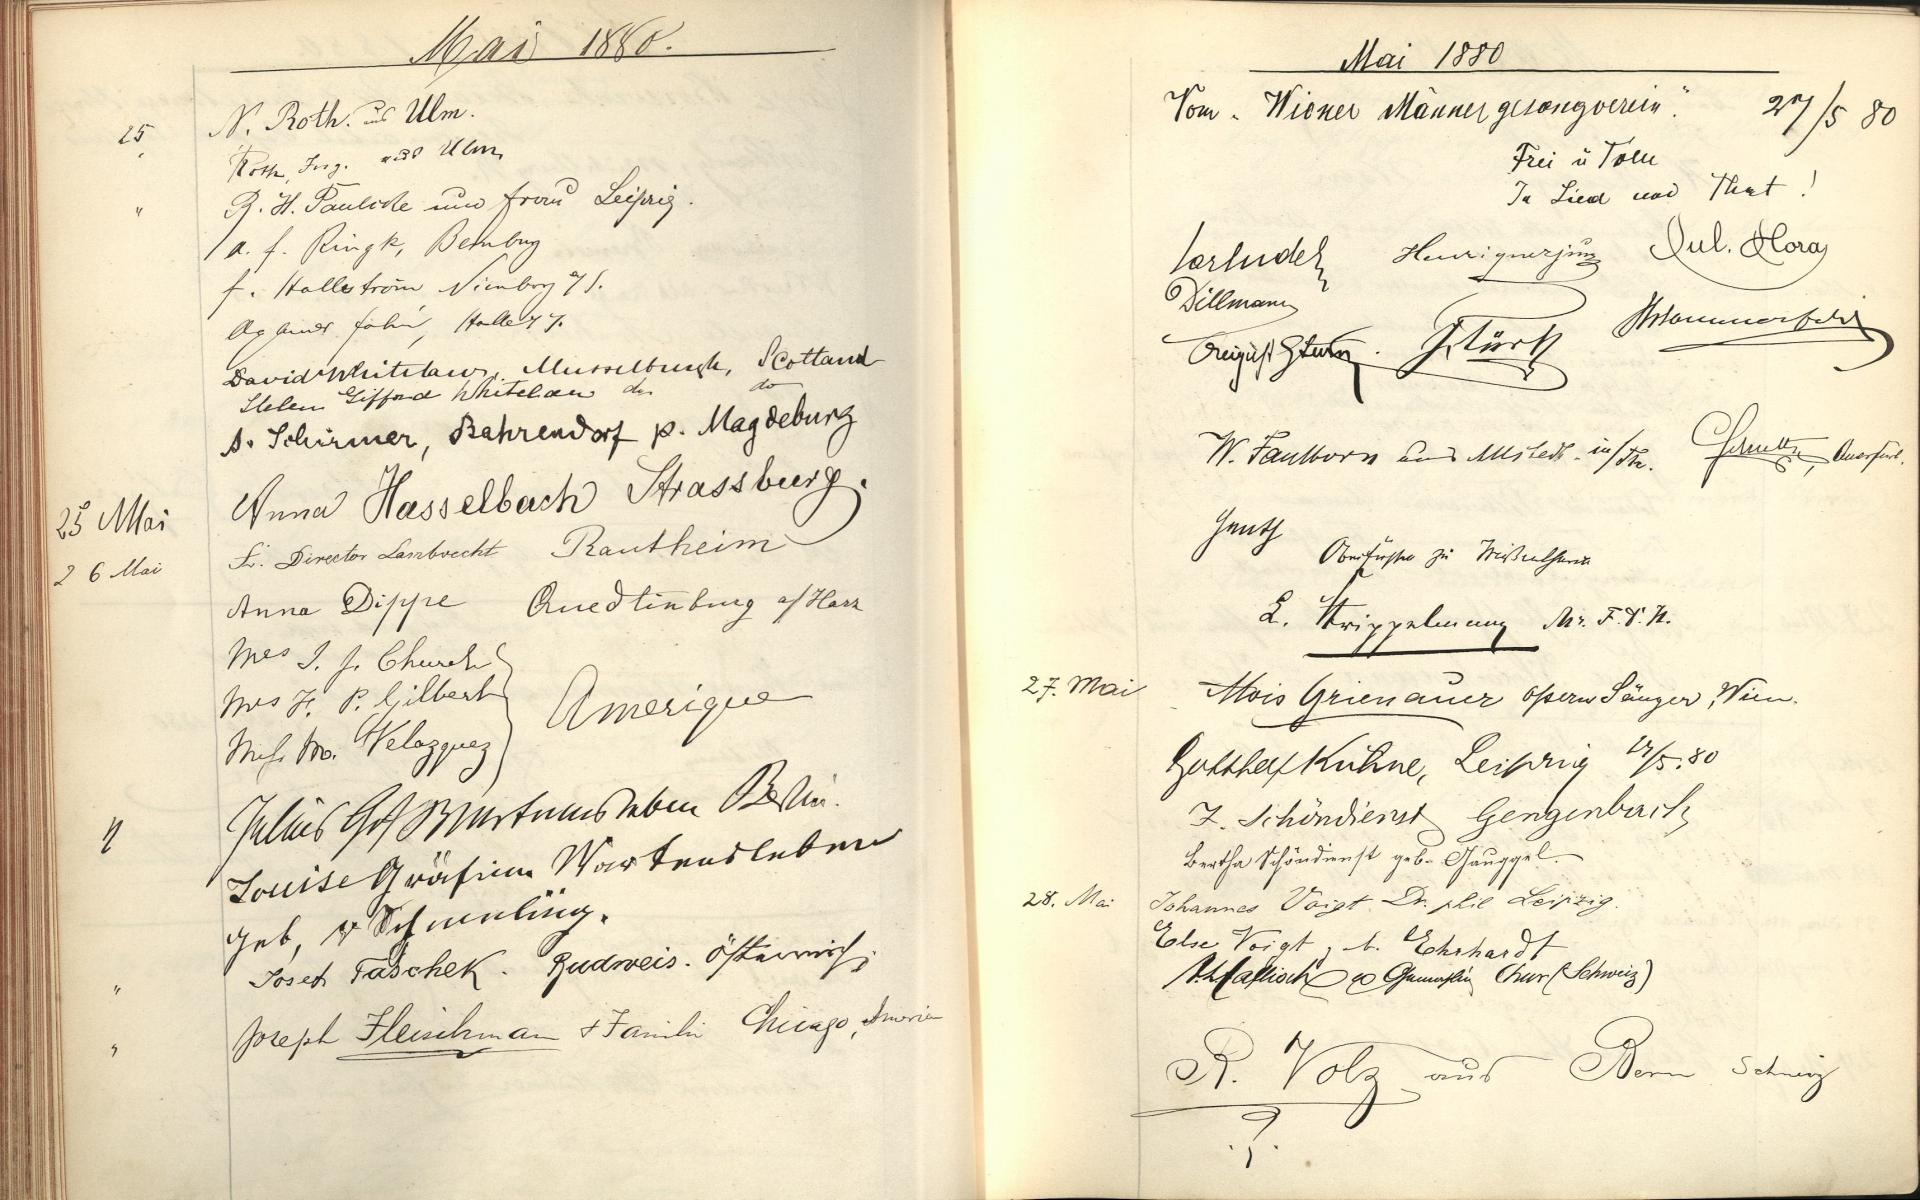 Mai 1880.
25 N. Roth. aus Ulm.
Roth, Ing. aus Ulm
" R. H. Paulcke und Frau Leipzig.
a. f. Ringk, Bernburg
f. Hallström, Nienburg a/S.
Halle a/S.
David Whitelaw, Musselburgh, Scotland
Helen Gifford Whitelaw do do
A. Schirmer, Bahrendorf p. Magdeburg
Anna Hasselbach Strassburg.
25 Mai
Director Lambrecht Rautheim
26 Mai
Anna Dippe Quedlinburg a/Harz
Mrs I. J. Church
Mrs H. P. Gilbert
Miss M. Velazquez
Amerique
" Julius Gf Wartensleben Berlin.
Louise Gräfin Wartensleben
geb. v Schmeling.
" Josef Taschek. Budweis. Österreich
" Joseph Fleischman & Familie Chicago, America
Mai 1880
Vom "Wiener Männergesangverein". 27/5 80
Frei u Treu
In Lied und That!
Jul. Hora
Dillmann
August Sturm. Türk
W. Faulborn aus Allstedt in/Th. Querfurt.
L. Strippelmann
27. Mai Alois Grienauer Opern Sänger, Wien.
Gotthelf Kühne, Leipzig 27/5.80
Z. Schöndienst Gengenbach
Bertha Schöndienst geb. Gänggel.
28. Mai Johannes Voigt Dr. phil Leipzig.
Else Voigt, Ehrhardt
Chur (Schweiz)
R. Volz aus Bern Schweiz